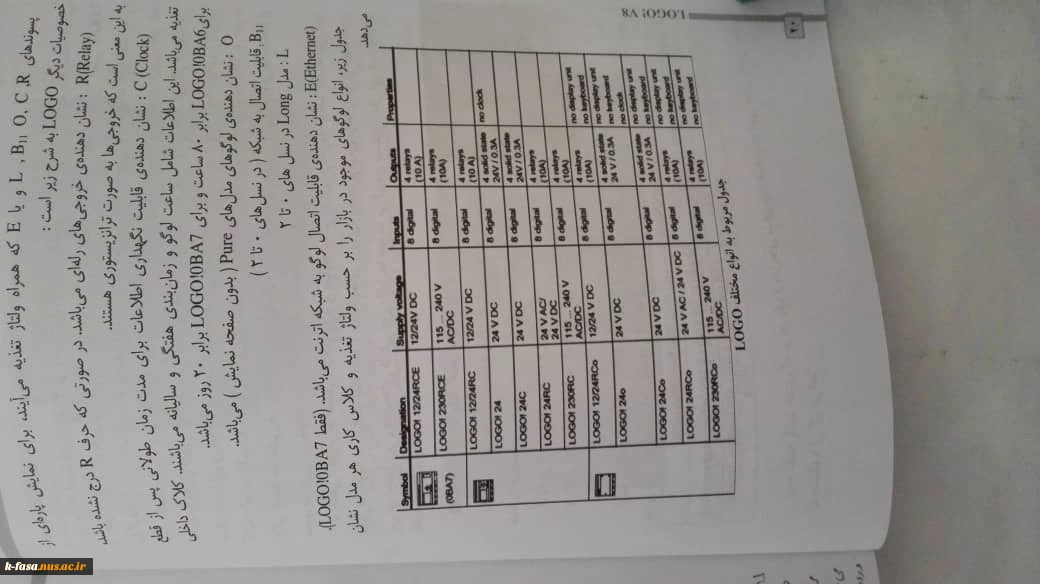 ۲۰
LOGO! V8
پسوندهای L , B11 , O, C ,R و یا E که همراه ولتاژ تغذیه می‌آیند، برای نمایش پاره‌ای از
خصوصیات دیگر LOGO به شرح زیر است :
R(Relay) : نشان دهنده‌ی خروجی‌های رله‌ای می‌باشد. در صورتی که حرف R درج نشده باشد
به این معنی است که خروجی‌ها به صورت ترانزیستوری هستند.
C (Clock) : نشان دهنده‌ی قابلیت نگهداری اطلاعات برای مدت زمان طولانی پس از قطع
تغذیه می‌باشد. این اطلاعات شامل ساعت لوگو و زمان‌بندی هفتگی و سالیانه می‌باشند. کلاک داخلی
برای LOGO!0BA6 برابر ۸۰ ساعت و برای LOGO!0BA7 برابر ۲۰ روز می‌باشد.
O : نشان دهنده‌ی لوگوهای مدل‌های Pure ( بدون صفحه نمایش ) می‌باشد.
B11: قابلیت اتصال به شبکه ( در نسل‌های ۰ تا ۲ )
L : مدل Long در نسل های ۰ تا ۲
E(Ethernet) : نشان دهنده‌ی قابلیت اتصال لوگو به شبکه اترنت می‌باشد. (فقط LOGO!0BA7).
جدول زیر، انواع لوگوهای موجود در بازار را بر حسب ولتاژ تغذیه و کلاس کاری هر مدل نشان
می‌دهد.
Symbol Designation Supply voltage Inputs Outputs Properties
(0BA7)
LOGO! 12/24RCE 12/24V DC 8 digital 4 relays (10 A)
LOGO! 230RCE 115 ... 240 V AC/DC 8 digital 4 relays (10A)
LOGO! 12/24RC 12/24 V DC 8 digital 4 relays (10 A)
LOGO! 24 24 V DC 8 digital 4 solid state 24V / 0.3A no clock
LOGO! 24C 24 V DC 8 digital 4 solid state 24V / 0.3A
LOGO! 24RC 24 V AC/ 24 V DC 8 digital 4 relays (10A)
LOGO! 230RC 115 ... 240 V AC/DC 8 digital 4 relays (10A)
LOGO! 12/24RCo 12/24 V DC 8 digital 4 relays (10A) no display unit no keyboard
LOGO! 24o 24 V DC 8 digital 4 solid state 24 V / 0.3A no display unit no keyboard no clock
LOGO! 24Co 24 V DC 8 digital 4 solid state 24 V / 0.3A no display unit no keyboard
LOGO! 24RCo 24 V AC / 24 V DC 8 digital 4 relays (10A) no display unit no keyboard
LOGO! 230RCo 115 ... 240 V AC/DC 8 digital 4 relays (10A) no display unit no keyboard
جدول مربوط به انواع مختلف LOGO
k-fasa.nus.ac.ir